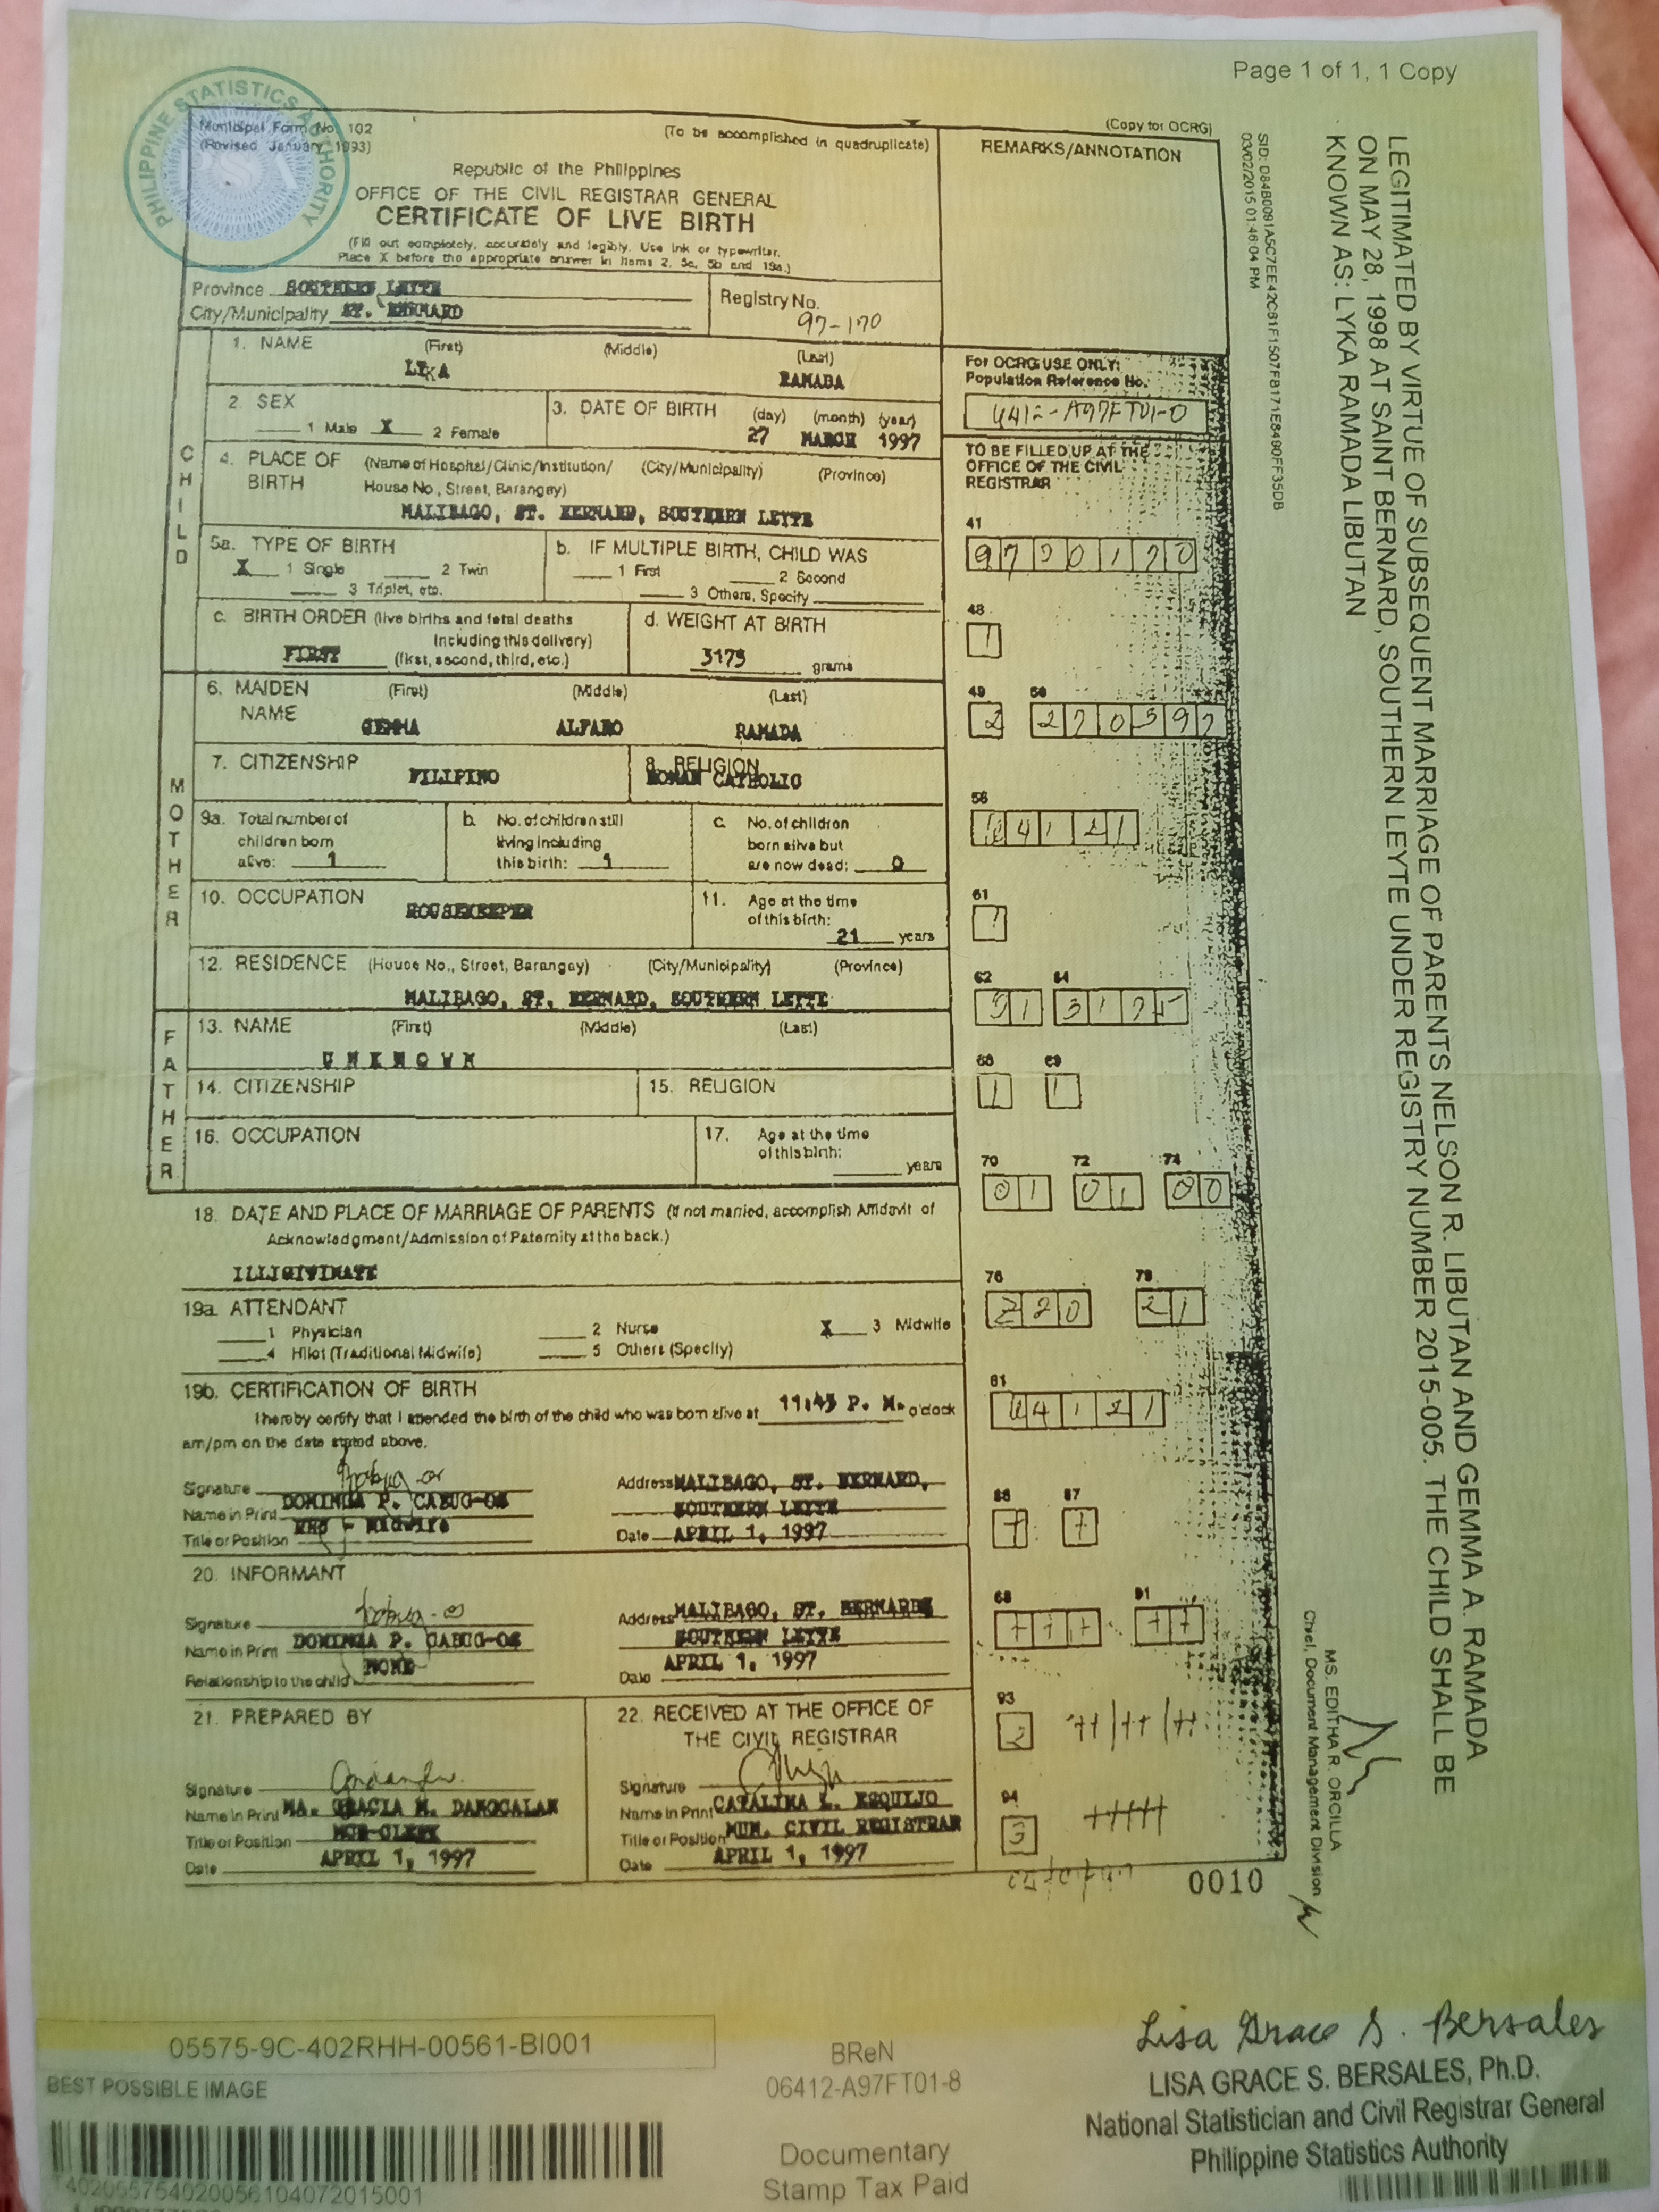 Page 1 of 1, 1 Copy
PHILIPPINE STATISTICS AUTHORITY
Municipal Form No. 102
(Revised January 1993)
(To be accomplished in quadruplicate)
(Copy for OCRG)
Republic of the Philippines
OFFICE OF THE CIVIL REGISTRAR GENERAL
CERTIFICATE OF LIVE BIRTH
(Fill out completely, accurately and legibly. Use ink or typewriter.
Place X before the appropriate answer in items 2, 5a, 5b and 19a.)
REMARKS/ANNOTATION
Province SOUTHERN LEYTE
City/Municipality ST. BERNARD
Registry No.
97-170
CHILD
1. NAME (First) (Middle) (Last)
LYKA RAMADA
For OCRG USE ONLY:
Population Reference No.
2. SEX
1 Male X 2 Female
3. DATE OF BIRTH (day) (month) (year)
27 MARCH 1997
TO BE FILLED UP AT THE
OFFICE OF THE CIVIL
REGISTRAR
4. PLACE OF BIRTH (Name of Hospital/Clinic/Institution/ (City/Municipality) (Province)
House No., Street, Barangay)
MALIBAGO, ST. BERNARD, SOUTHERN LEYTE
5a. TYPE OF BIRTH
X 1 Single 2 Twin
3 Triplet, etc.
b. IF MULTIPLE BIRTH, CHILD WAS
1 First 2 Second
3 Others, Specify
41
9700170
c. BIRTH ORDER (live births and fetal deaths
including this delivery)
FIRST (first, second, third, etc.)
d. WEIGHT AT BIRTH
3175 grams
48
1
MOTHER
6. MAIDEN NAME (First) (Middle) (Last)
GEMMA ALFARO RAMADA
49 50
2 270397
7. CITIZENSHIP FILIPINO
8. RELIGION
ROMAN CATHOLIC
56
9a. Total number of
children born
alive: 1
b. No. of children still
living including
this birth: 1
c. No. of children
born alive but
are now dead: 0
10. OCCUPATION HOUSEKEEPER
11. Age at the time
of this birth:
21 years
61
1
12. RESIDENCE (House No., Street, Barangay) (City/Municipality) (Province)
MALIBAGO, ST. BERNARD, SOUTHERN LEYTE
62 64
3175
FATHER
13. NAME (First) (Middle) (Last)
UNKNOWN
68 69
1 1
14. CITIZENSHIP
15. RELIGION
16. OCCUPATION
17. Age at the time
of this birth:
years
70 72 74
01 01 00
18. DATE AND PLACE OF MARRIAGE OF PARENTS (If not married, accomplish Affidavit of
Acknowledgment/Admission of Paternity at the back.)
ILLIGITIMATE
76 79
220 21
19a. ATTENDANT
1 Physician 2 Nurse X 3 Midwife
4 Hilot (Traditional Midwife) 5 Others (Specify)
19b. CERTIFICATION OF BIRTH
I hereby certify that I attended the birth of the child who was born alive at 11:45 P. M. o'clock
am/pm on the date stated above.
81
Signature
Name in Print DOMINGA P. CABUG-OS
Title or Position RHU - Midwife
Address MALIBAGO, ST. BERNARD,
SOUTHERN LEYTE
Date APRIL 1, 1997
86 87
20. INFORMANT
Signature
Name in Print DOMINGA P. CABUG-OS
Relationship to the child NONE
Address MALIBAGO, ST. BERNARD
SOUTHERN LEYTE
Date APRIL 1, 1997
88 91
21. PREPARED BY
Signature
Name in Print MA. GRACIA M. DANOCALAN
Title or Position MCR-CLERK
Date APRIL 1, 1997
22. RECEIVED AT THE OFFICE OF
THE CIVIL REGISTRAR
Signature
Name in Print CATALINA L. ESQUIJO
Title or Position MUN. CIVIL REGISTRAR
Date APRIL 1, 1997
93
94
0010
SID: D84B0091A5C7EE42C61F1507FB171E8490FF35DB
03/02/2015 01:46:04 PM
LEGITIMATED BY VIRTUE OF SUBSEQUENT MARRIAGE OF PARENTS NELSON R. LIBUTAN AND GEMMA A. RAMADA
ON MAY 28, 1998 AT SAINT BERNARD, SOUTHERN LEYTE UNDER REGISTRY NUMBER 2015-005. THE CHILD SHALL BE
KNOWN AS: LYKA RAMADA LIBUTAN
MS. EDITHA R. ORCILLA
Chief, Document Management Division
05575-9C-402RHH-00561-BI001
BEST POSSIBLE IMAGE
T402055754020056104072015001
BReN
06412-A97FT01-8
Documentary
Stamp Tax Paid
Lisa Grace S. Bersales
LISA GRACE S. BERSALES, Ph.D.
National Statistician and Civil Registrar General
Philippine Statistics Authority